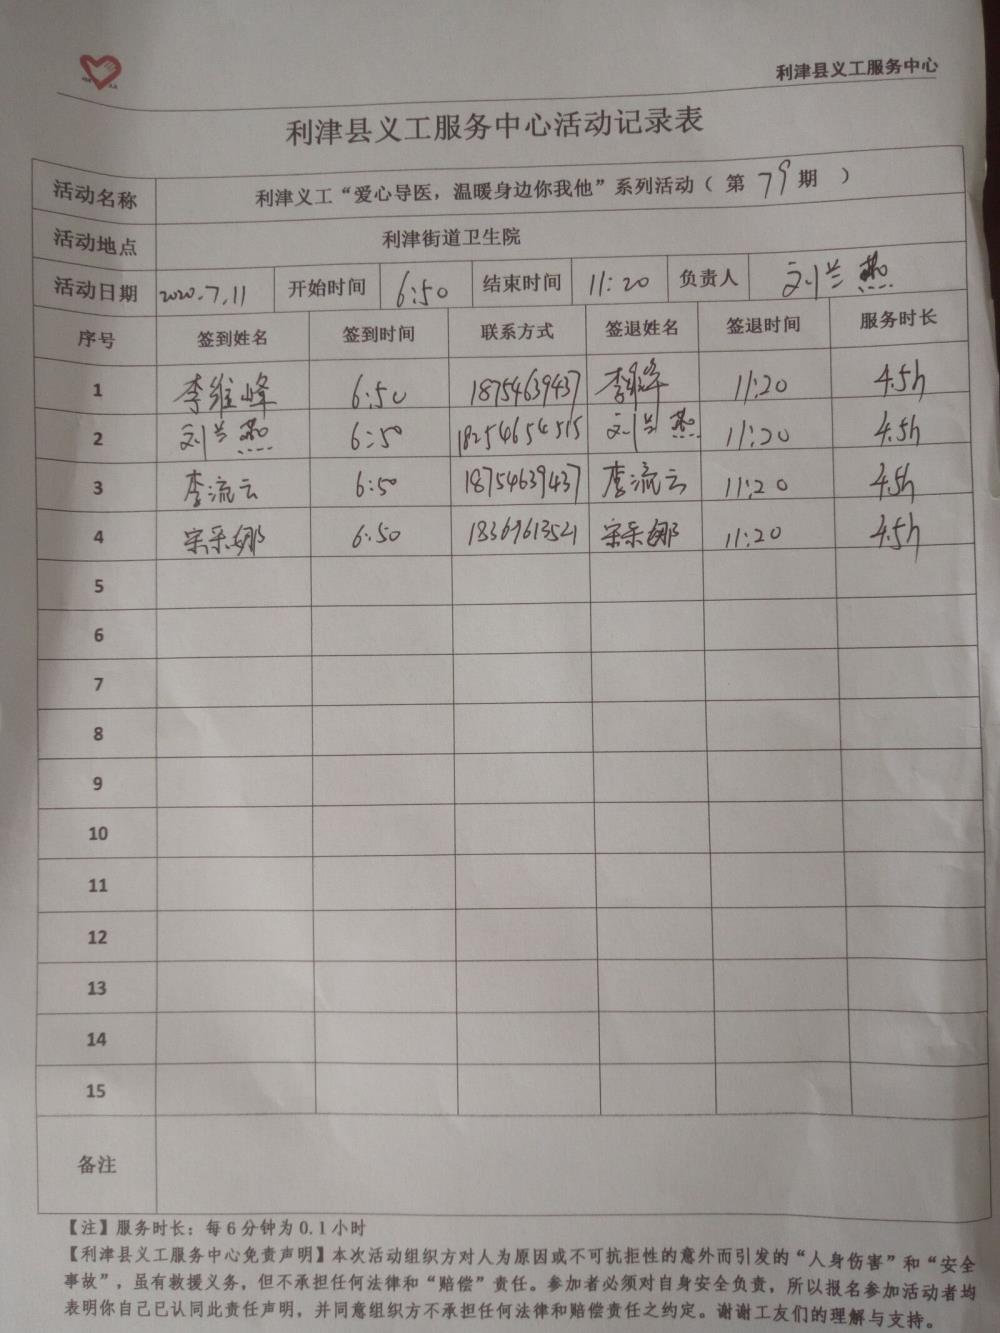 利津县义工服务中心
利津县义工服务中心活动记录表
活动名称 利津义工“爱心导医，温暖身边你我他”系列活动（ 第 79 期 ）
活动地点 利津街道卫生院
活动日期 2020.7.11 开始时间 6:50 结束时间 11:20 负责人 刘兰燕
序号 签到姓名 签到时间 联系方式 签退姓名 签退时间 服务时长
1 李维峰 6:50 18754639437 李维峰 11:20 4.5h
2 刘兰燕 6:50 18254654515 刘兰燕 11:20 4.5h
3 李流云 6:50 18754639437 李流云 11:20 4.5h
4 宋采娜 6:50 18369613521 宋采娜 11:20 4.5h
5
6
7
8
9
10
11
12
13
14
15
备注
【注】服务时长：每6分钟为0.1小时
【利津县义工服务中心免责声明】本次活动组织方对人为原因或不可抗拒性的意外而引发的“人身伤害”和“安全
事故”，虽有救援义务，但不承担任何法律和“赔偿”责任。参加者必须对自身安全负责，所以报名参加活动者均
表明你自己已认同此责任声明，并同意组织方不承担任何法律和赔偿责任之约定。谢谢工友们的理解与支持。